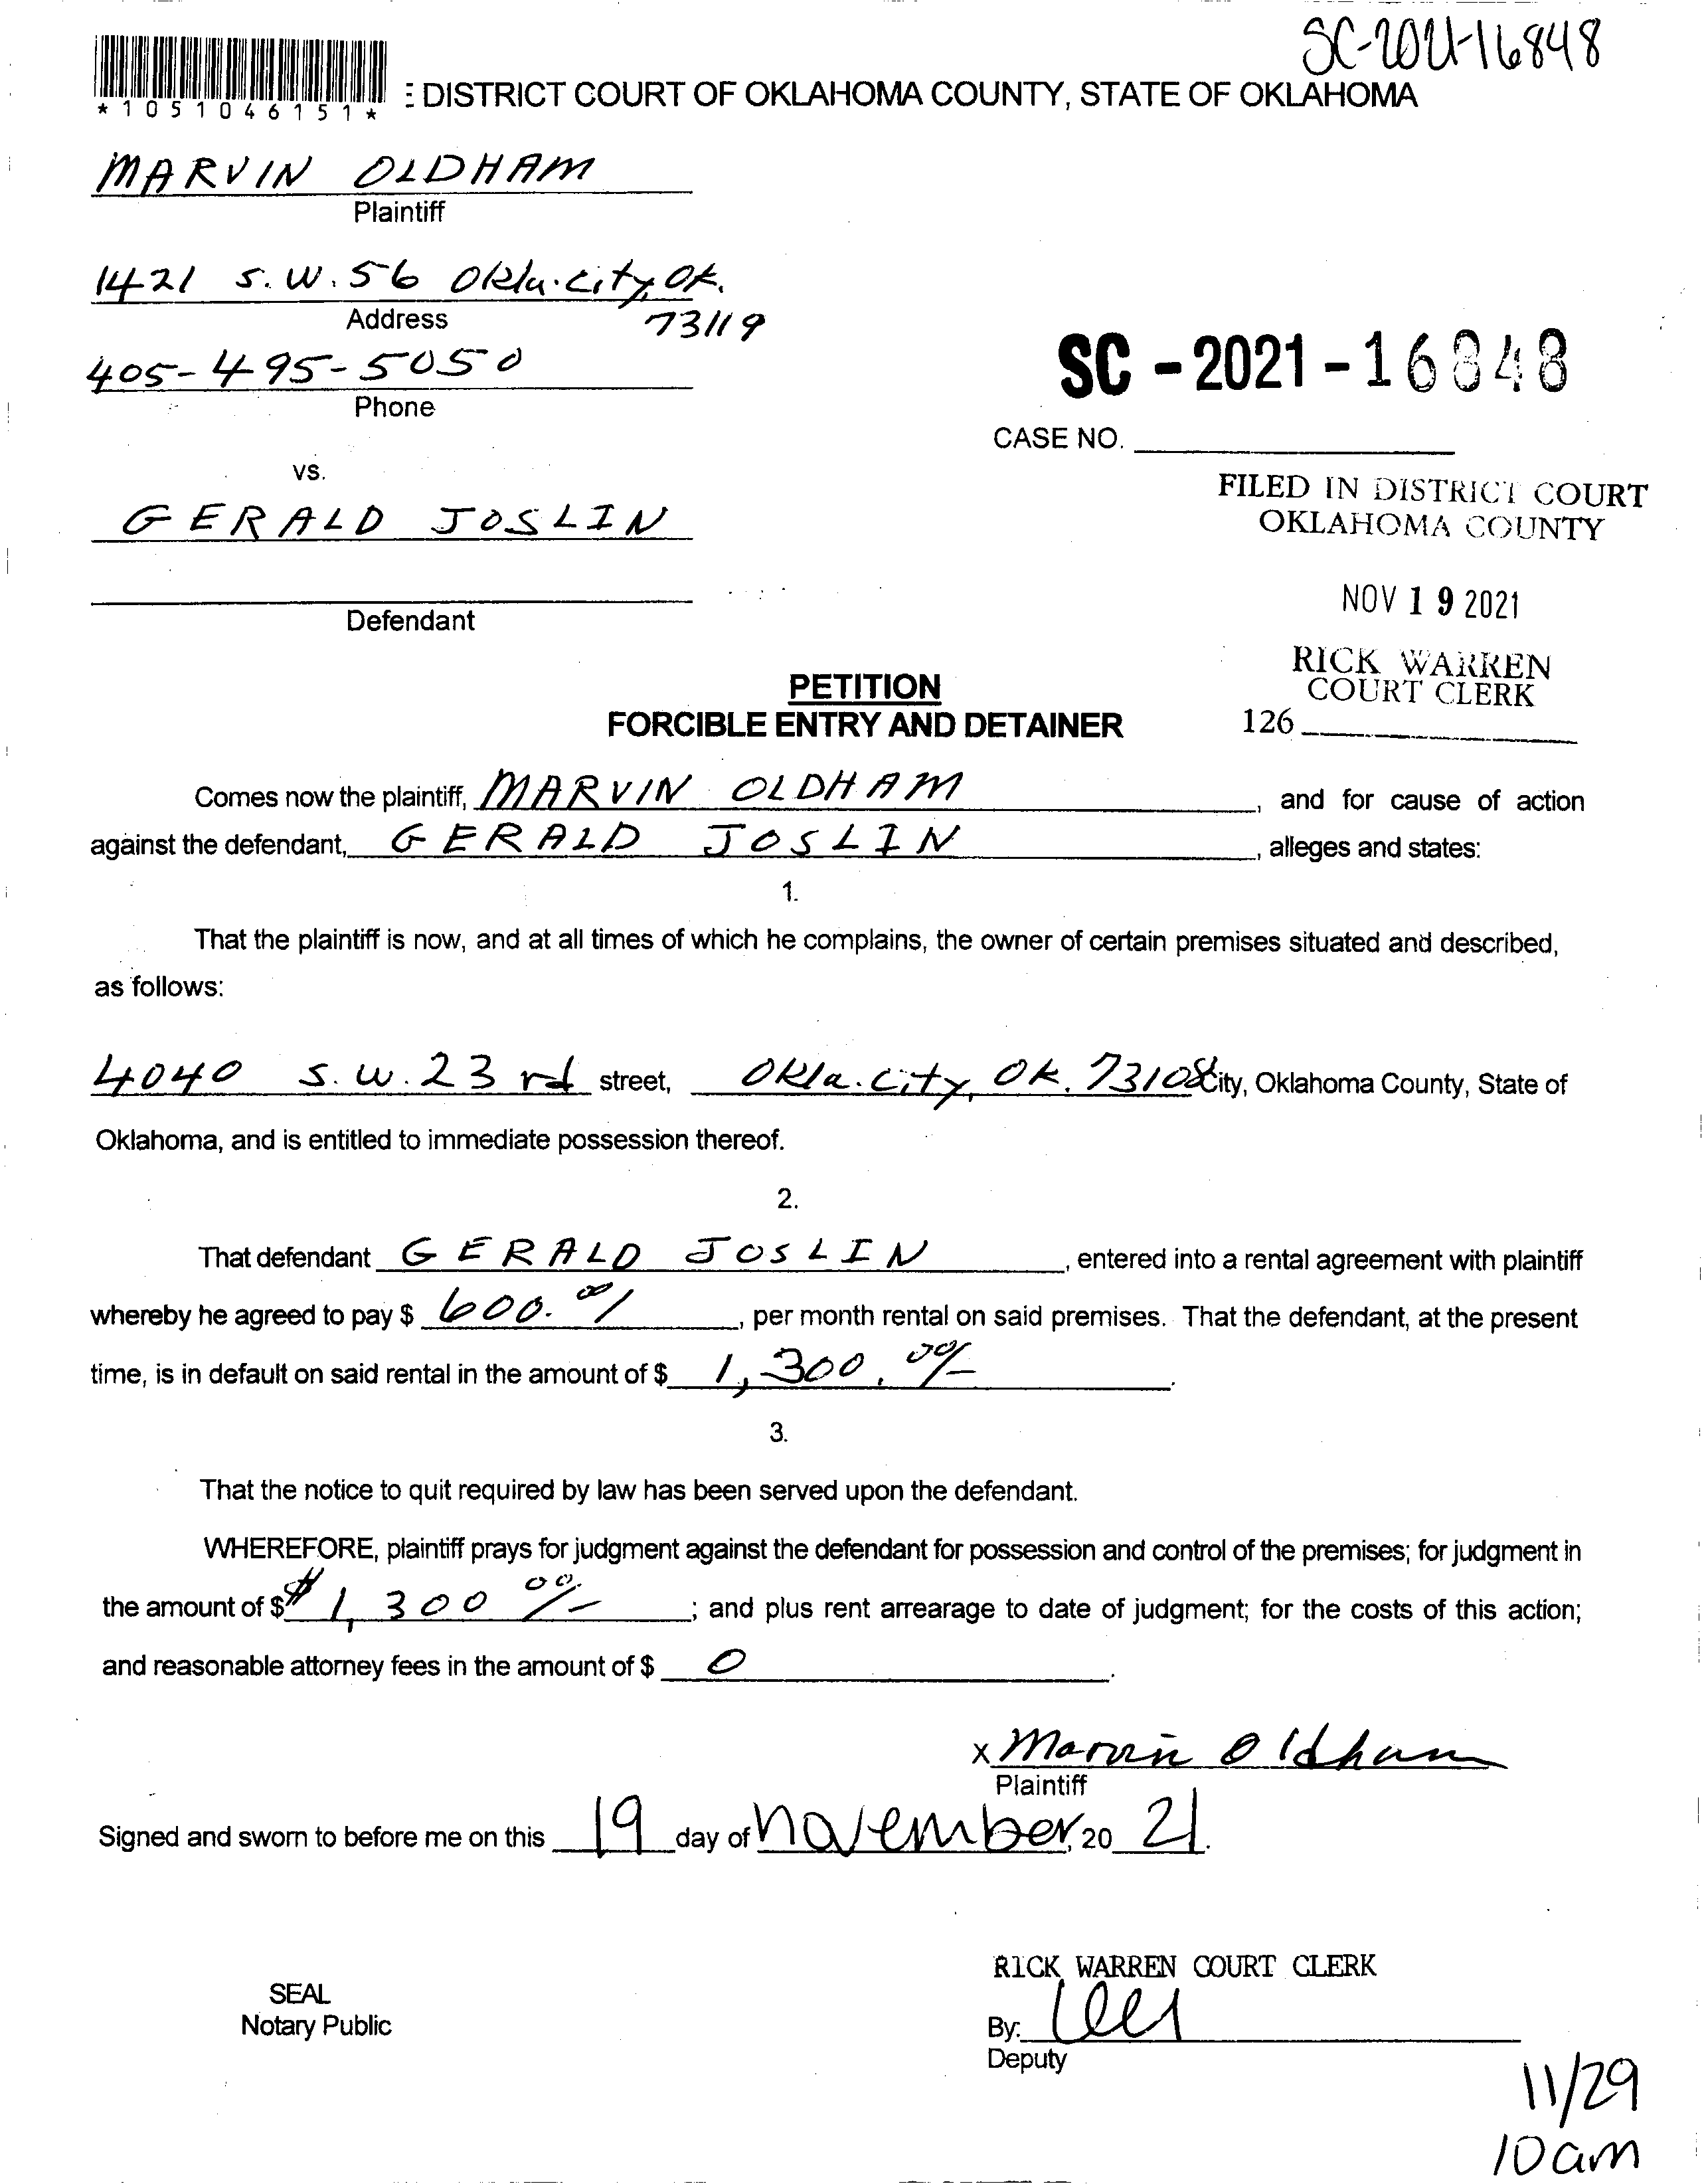 SC-2021-16848
*1051046151*
DISTRICT COURT OF OKLAHOMA COUNTY, STATE OF OKLAHOMA
MARVIN OLDHAM
Plaintiff
1421 S.W. 56 Okla. City, Ok.
73119
Address
405-495-5050
Phone
SC - 2021 - 16848
CASE NO.
vs.
FILED IN DISTRICT COURT
OKLAHOMA COUNTY
GERALD JOSLIN
NOV 19 2021
Defendant
RICK WARREN
COURT CLERK
126
PETITION
FORCIBLE ENTRY AND DETAINER
Comes now the plaintiff, MARVIN OLDHAM, and for cause of action
against the defendant, GERALD JOSLIN, alleges and states:
1.
That the plaintiff is now, and at all times of which he complains, the owner of certain premises situated and described,
as follows:
4040 S.W. 23rd street, Okla. City, OK. 73108 City, Oklahoma County, State of
Oklahoma, and is entitled to immediate possession thereof.
2.
That defendant GERALD JOSLIN, entered into a rental agreement with plaintiff
whereby he agreed to pay $ 600.00/, per month rental on said premises. That the defendant, at the present
time, is in default on said rental in the amount of $ 1,300.00/-.
3.
That the notice to quit required by law has been served upon the defendant.
WHEREFORE, plaintiff prays for judgment against the defendant for possession and control of the premises; for judgment in
the amount of $ $1,300 00/-; and plus rent arrearage to date of judgment; for the costs of this action;
and reasonable attorney fees in the amount of $ 0.
x Marvin Oldham
Plaintiff
Signed and sworn to before me on this 19 day of November, 20 21.
RICK WARREN COURT CLERK
SEAL
Notary Public
By:
Deputy
11/29
10am